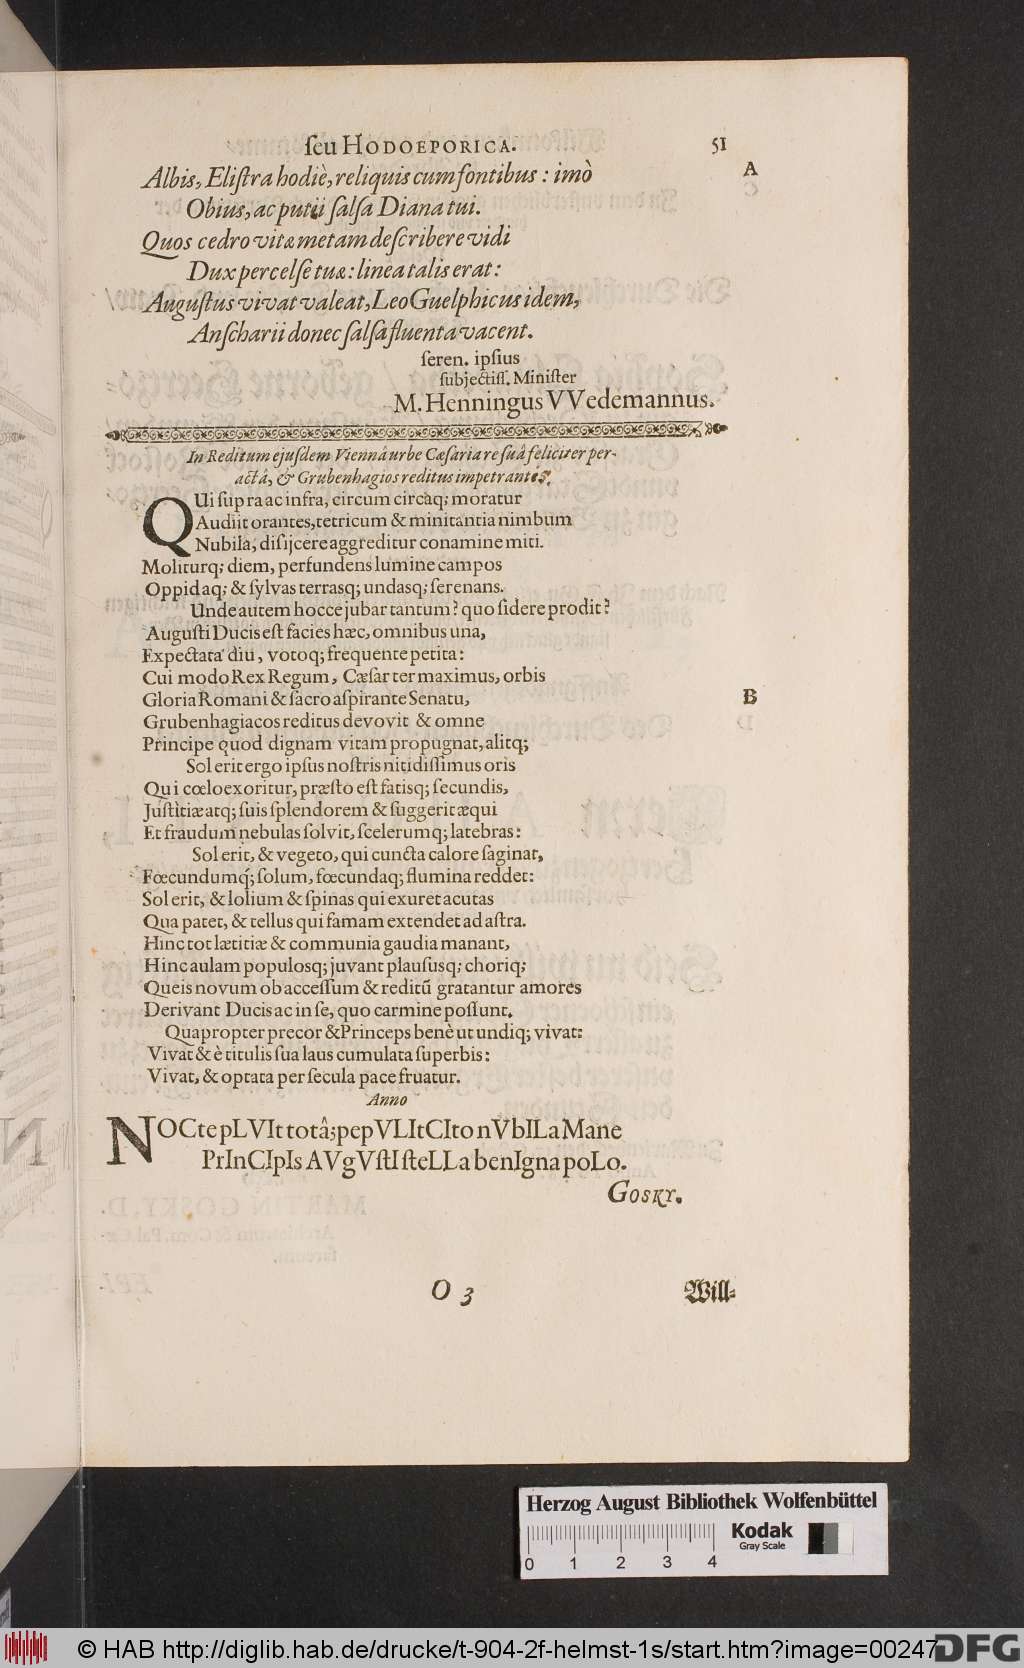 seu HODOEPORICA. 51
A
Albis, Elistra hodiè, reliquis cum fontibus: imò
Obius, ac putii salsa Diana tui.
Quos cedro vitæ metam describere vidi
Dux percelse tuæ: linea talis erat:
Augustus vivat valeat, Leo Guelphicus idem,
Anscharii donec salsa fluenta vacent.
seren. ipsius
subjectiss. Minister
M. Henningus VVedemannus.
In Reditum ejusdem Viennâ urbe Cæsaria re suâ feliciter per-
actâ, & Grubenhagios reditus impetrantes.
QUi supra ac infra, circum circaq; moratur
Audiit orantes, tetricum & minitantia nimbum
Nubila, disijcere aggreditur conamine miti.
Moliturq; diem, perfundens lumine campos
Oppidaq; & sylvas terrasq; undasq; serenans.
Unde autem hocce jubar tantum? quo sidere prodit?
Augusti Ducis est facies hæc, omnibus una,
Expectata diu, votoq; frequente petita:
Cui modo Rex Regum, Cæsar ter maximus, orbis
Gloria Romani & sacro aspirante Senatu,
B
Grubenhagiacos reditus devovit & omne
Principe quod dignam vitam propugnat, alitq;
Sol erit ergo ipsus nostris nitidissimus oris
Qui cœlo exoritur, præsto est fatisq; secundis,
Justitiæ atq; suis splendorem & suggerit æqui
Et fraudum nebulas solvit, scelerumq; latebras:
Sol erit, & vegeto, qui cuncta calore saginat,
Fœcundumq; solum, fœcundaq; flumina reddet:
Sol erit, & lolium & spinas qui exuret acutas
Qua patet, & tellus qui famam extendet ad astra.
Hinc tot lætitiæ & communia gaudia manant,
Hinc aulam populosq; juvant plaususq; choriq;
Queis novum ob accessum & reditũ gratantur amores
Derivant Ducis ac in se, quo carmine possunt.
Quapropter precor & Princeps benè ut undiq; vivat:
Vivat & è titulis sua laus cumulata superbis:
Vivat, & optata per secula pace fruatur.
Anno
NOCte pLVIt totâ; pepVLIt CIto nVbILa Mane
PrInCIpIs AVgVstI steLLa benIgna poLo.
GOSKY.
O 3 Will-
Herzog August Bibliothek Wolfenbüttel
0 1 2 3 4
Kodak
Gray Scale
© HAB http://diglib.hab.de/drucke/t-904-2f-helmst-1s/start.htm?image=00247
DFG